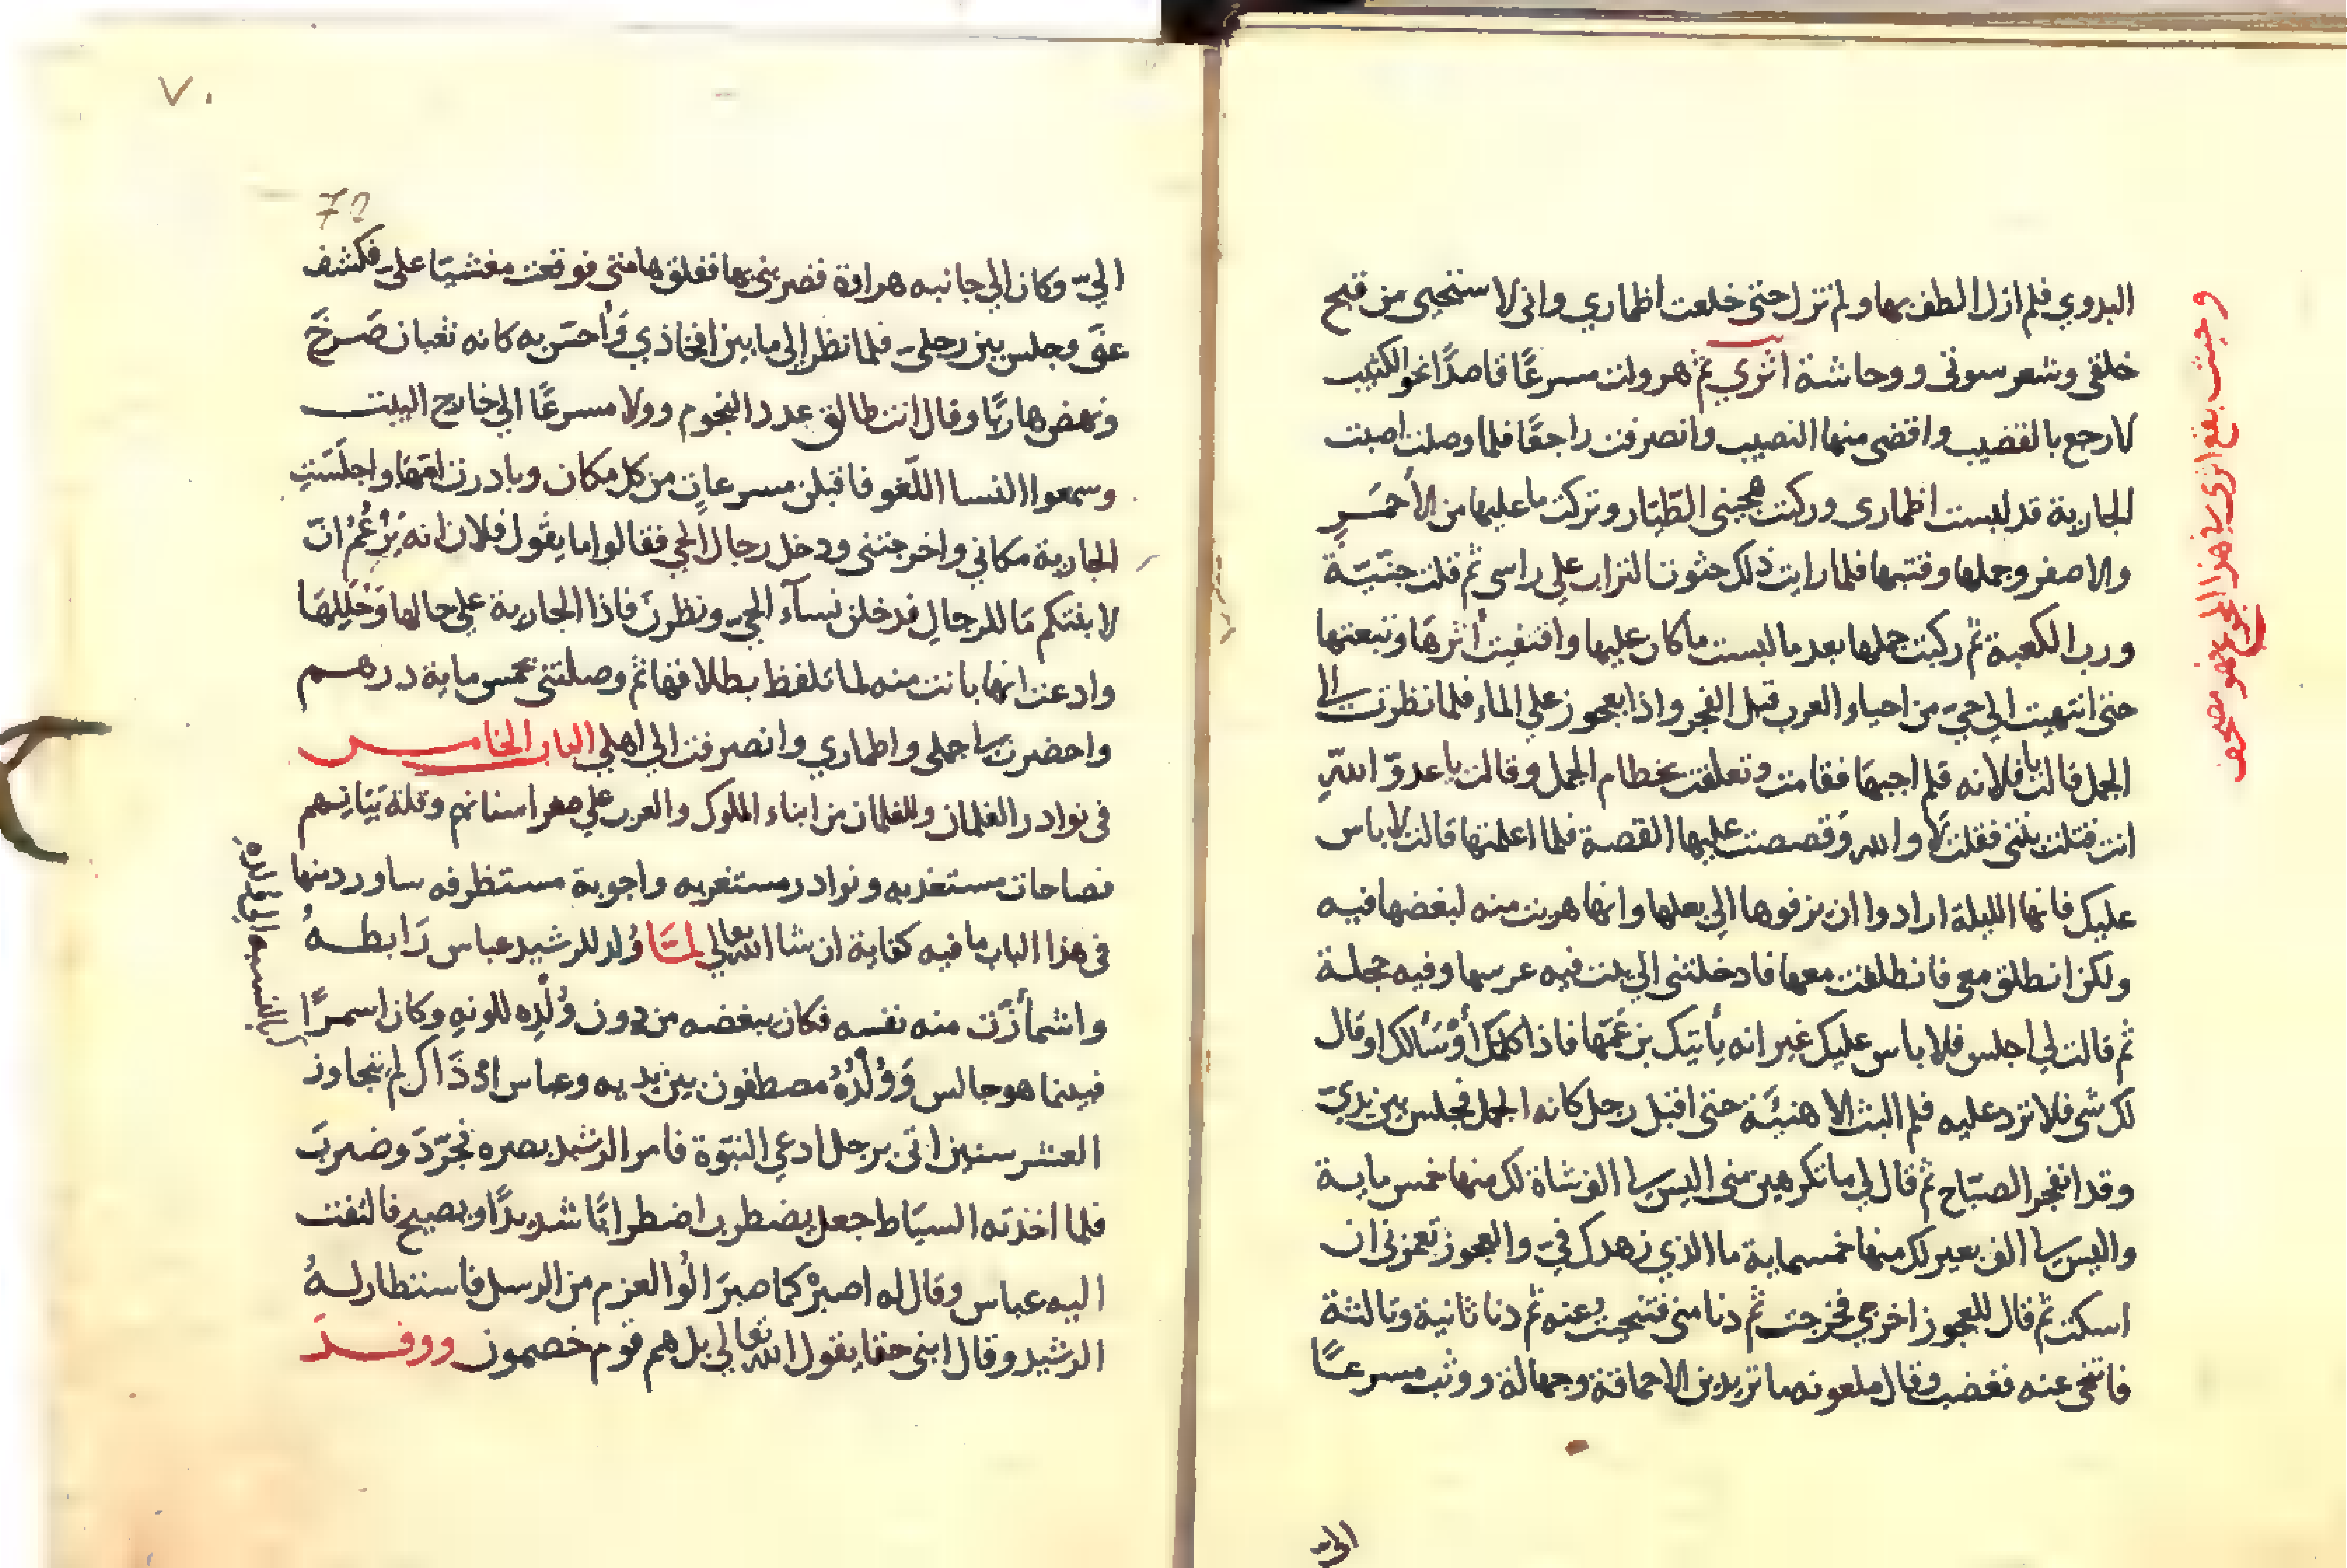 البدوي فلم ازل الطف بها ولم تزل حتى خلعت اطماري واني لا ستحيى من قبح
خلقى وشعر سوتى ووحاشة اثري ثم هرولت مسرعًا قاصدًا نحو الكثيب
لارجع بالقضيب واقضى منها النصيب وانصرفت راجعًا فلما وصلت اصبت
الجارية قد لبست اطمارى وركبت هجينى الطيّار وتركت ما عليها من الأحمَرِ
والاصفر وجملها وقتبها فلما رايت ذلك حثوت التراب على راسى ثم قلت جنيّة
ورب الكعبة ثم ركبت جملها بعد ما لبست ما كان عليها واقتفيت أثرهَا وتبعتها
حتى انتهيت الي حيّ من احياء العرب قبل الفجر واذا بعجوز علي الماء فلما نظرت الى
الجمل قالت يا فلانه فلم اجبهَا فقامت وتعلقت بخطام الجمل وقالت يا عدوّ اللهِ
انت قتلت بنتى فقلت لَا والله وَقصصت عليها القصة فلما اعلمتها قالت لا باس
عليك فانها الليلة ارادوا ان يزفوها الي بعلها وانها هربت منه لبغضها فيه
ولكن انطلق معى فانطلقت معها فادخلتنى الي بيت فيه عرسها وفيه حجلة
ثم قالت لي اجلس فلا باس عليك غير انه يأتيك بن عَمّها فاذا كلمَك أوْسَألك او قال
لك شى فلا ترد عليه فلم البث الا هنيئَة حتى اقبل رجل كانه الجمل فجلس بين يديّ
وقد انفجر الصبَاح ثم قال لي ما تكرهين منى اليس لى الف شاة لك منها خمس ماية
واليس لى الف بعير لك منها خمسماية ما الذي زهدك فيّ والعجوز تغمزنى ان
اسكت ثم قال للعجوز اخرجي فخرجت ثم دنا منى فتنحيت عنه ثم دنا ثانية وثالثة
فاتنحى عنه فغضب وقال ملعونه ما تزيدين الا حماقة وجهالة ووثب مسرعًا
اليّ
وحيث يقع اثرى فى هذا المجموع فهو مصحف
٧٠
70
اليّ وكان الي جانبه هراوة فضربنى بها ففلق هامتى فوقعت مغشيّا علىّ فكشف
عنّى وجلس بين رحلىّ فلما نظر الى ما بين افخاذي وَأحسّ به كانه ثعبان صَرخَ
ونهض هاربًا وقال انت طالق عدد النجوم وولا مسرعًا الي خارج البيت
وسمعوا النسا اللّغو فاقبلن مسرعاتٍ من كل مكان وبادرت امّهَا واجلسَت
الجارية مكاني واخرجتنى ودخل رجال الحي فقالوا ما يقول فلان انه يَزْعُمُ انّ
لابنتكم مَا للرجالِ فدخلن نسآء الحيّ ونظرنَ فاذا الجارية علي حالها وَحُليِّهَا
وادعت انها بانت منه لما تلفظ بطلاقها ثم وصلتنى بخمس ماية درهم
واحضرت لى جملى واطماري وانصرفت الي اهلي الباب الخامس
فى نوادر الغلمان وللغلمان من ابناء الملوك والعرب علي صغر اسنانهم وقلة بَيَانهم
فصاحات مستعذبه ونوادر مستغربه واجوبة مستظرفه ساورد منها
فى هذا الباب ما فيه كفاية ان شا الله تعالي لمَّا وُلد للرشيد عباس رَابطهُ
واشمأزّت منه نفسه فكان يبغضه من دون وُلْدِه للونهِ وكان اسمرًا
فبينما هو جالس وَوُلْدُهُ مصطفون بين يديه وعباس اذ ذَاك لم يتجاوز
العشر سنين اتى برجل ادعي النبوّة فامر الرشيد بصره فجُرّدَ وضربَ
فلما اخذته السيَاط جعل يضطرب اضطرابًا شديدًا ويصيح فالتفت
اليه عباس وقال له اصبرْ كما صبرَ اُلُوا العزم من الرسل فاستطار لهُ
الرشيد وقال ابنى حقا يقول الله تعالي بل هم قوم خصمون ووفدَ
بالنسبه الي ولده